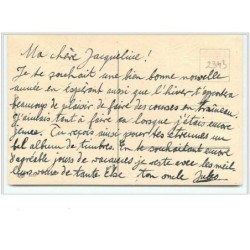 2543
Ma chère Jacqueline!
Je te souhait une bien bonne nouvelle
année en espérant aussi que l'hiver t'apportera
beaucoup de plaisir de faire des courses en traineau
J'aimais tout à faire ça lorsque j'étais encore
jeunes. Tu reçois aussi pour tes étrennes un
bel album de timbres. En te souhaitant encore
d'agréable jours de vacances, je reste avec les meil
leurs de tante Else ton oncle Jules